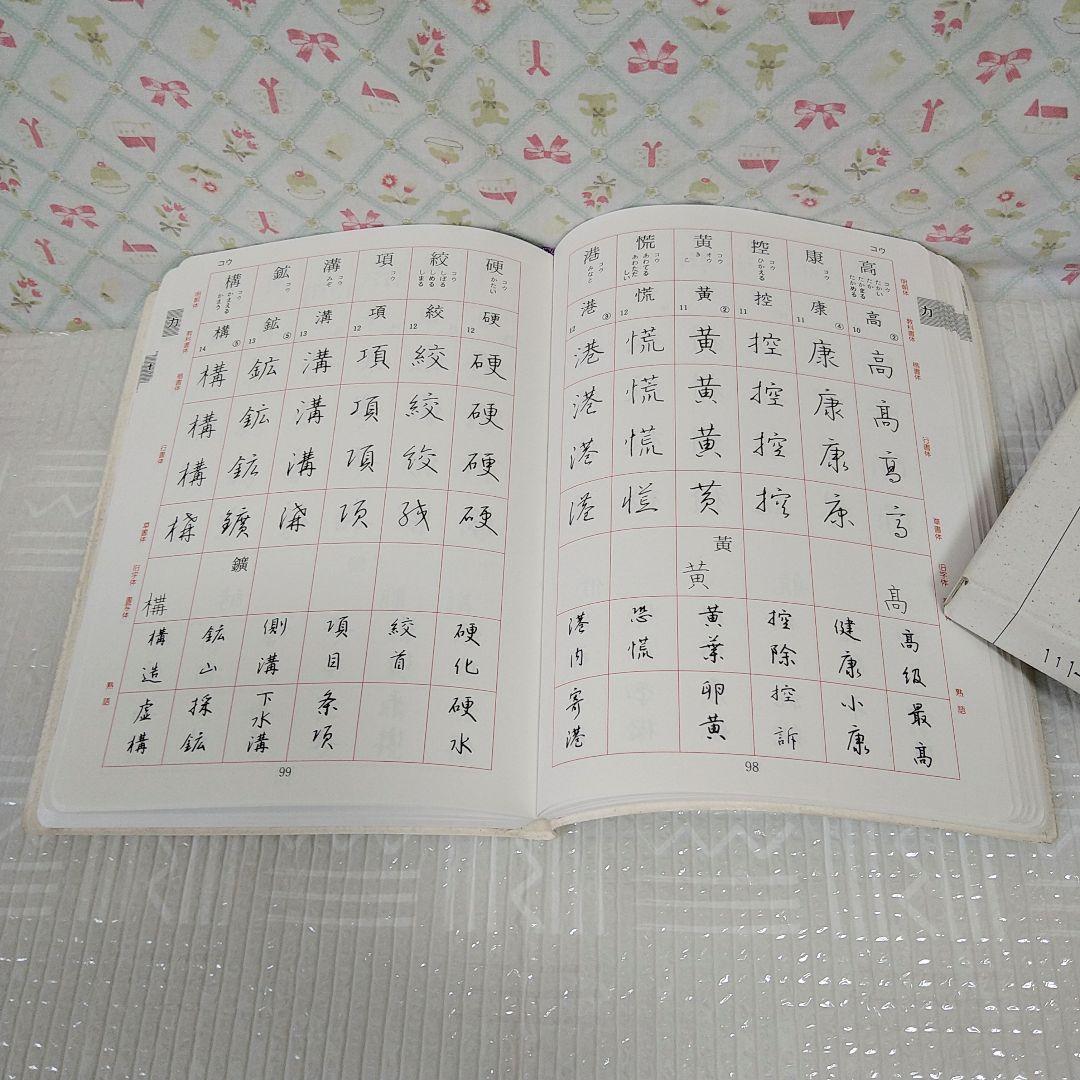 コウ
明朝体
教科書体
楷書体
行書体
草書体
旧字体
熟語
カ
高
コウ
たかい
たか
たかまる
たかめる
高
10
②
高
高
高
高
高
高級
最高
康
コウ
康
11
④
康
康
康
康
健康
小康
控
コウ
ひかえる
控
11
控
控
控
控
控除
控訴
黄
コウ
オウ
き
こ
黄
11
②
黄
黄
黄
黄
黃
黃
黄葉
卵黄
慌
コウ
あわてる
あわただしい
慌
12
慌
慌
慌
慌
恐慌
港
コウ
みなと
港
12
③
港
港
港
港
港内
寄港
98
硬
コウ
かたい
硬
12
硬
硬
硬
硬
硬化
硬水
絞
コウ
しぼる
しめる
しまる
絞
12
絞
絞
絞
絞
絞首
項
コウ
項
12
項
項
項
項
項目
条項
溝
コウ
みぞ
溝
13
溝
溝
溝
溝
側溝
下水溝
鉱
コウ
鉱
13
⑤
鉱
鉱
鉱
鑛
鑛
鉱山
採鉱
構
コウ
かまえる
かまう
構
14
⑤
構
構
構
構
構
構造
虚構
コウ
カ
明朝体
教科書体
楷書体
行書体
草書体
旧字体
熟語
99